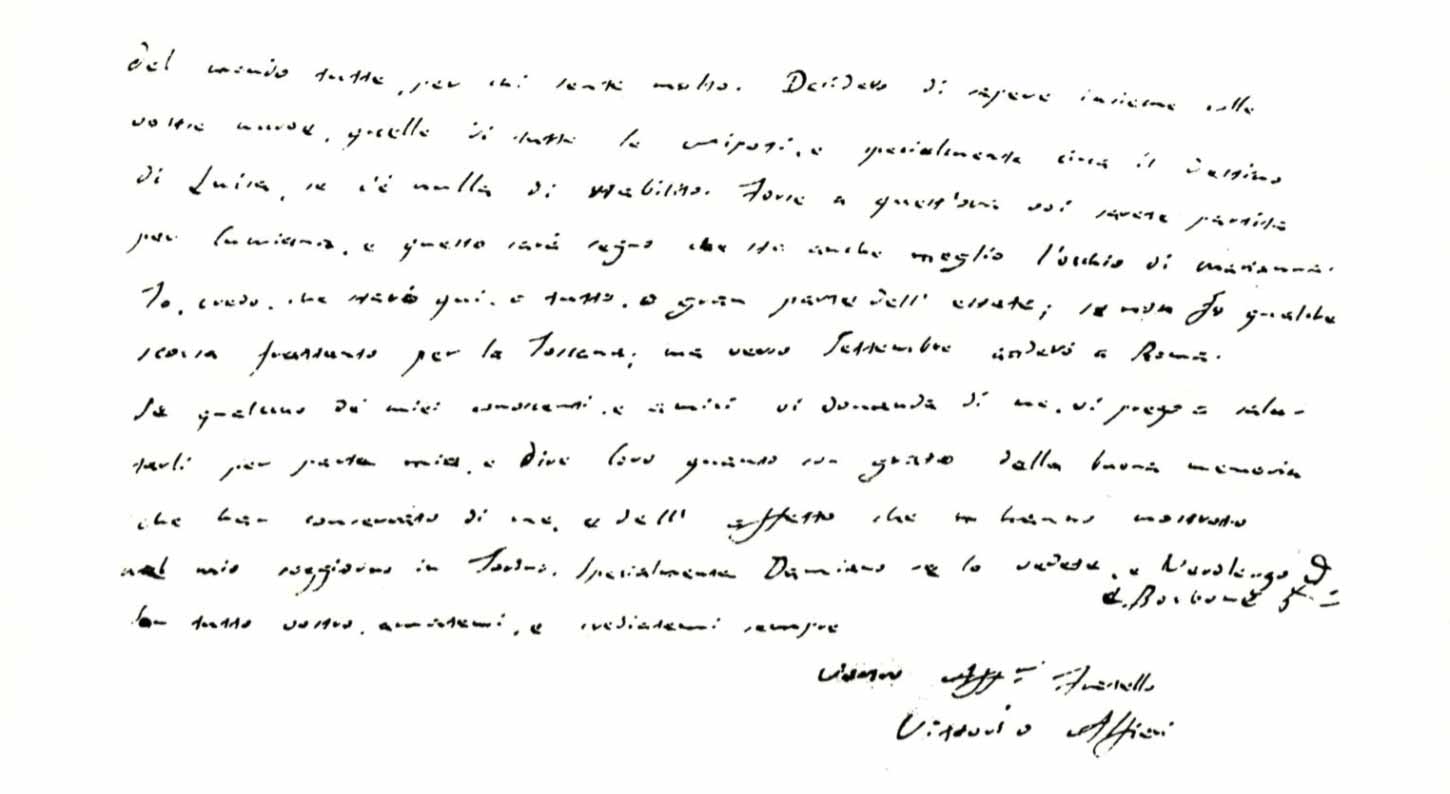 del mondo tutto, per chi sente molto. Desidero di sapere insieme colle
vostre nuove, quelle di tutte le nipoti, e specialmente circa il destino
di Luisa, se c'è nulla di stabilito. Forse a quest'ora voi sarete partita
per Cumiana, e questo sarà segno che sta anche meglio l'occhio di Marianna.
Io, credo, che starò qui, e tutto, o gran parte dell' estate; se non fo qualche
scorsa frattanto per la Toscana; ma verso Settembre anderò a Roma.
Se qualcuno de miei conoscenti, e amici vi domanda di me, vi prego a salu-
tarli per parte mia, e dire loro quanto son grato della buona memoria
che han conservato di me, e dell' affetto che m hanno mostrato
nel mio soggiorno in Torino. Specialmente Damiano se lo vedete, e
e, Barbone
Son tutto vostro, amatemi, e credetemi sempre
Vostro Aff.mo Fratello
Vittorio Alfieri